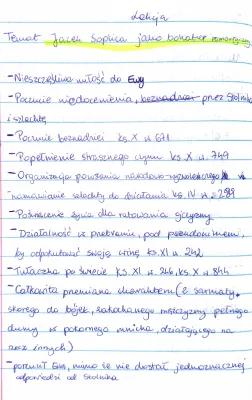 Lekcja
Temat Jacek Soplica jako bohater romantyczny
- Nieszczęśliwa miłość do Ewy
- Poczucie niedocenienia, przez Stolnika
i szlachtę
- Poczucie beznadziei ks. X w. 671
- Popełnienie strasznego czynu ks. X w. 749
- Organizacja powstania narodowo-wyzwoleńczego
namawianie szlachty do działania ks. IV w. 289
- Poświęcenie życia dla ratowania ojczyzny
- Działalność w przebraniu, pod pseudonimem,
by odpokutować swoją winę ks. XI w. 242
- Tułaczka po świecie ks. XI w. 246, ks. X w. 844
- Całkowita przemiana charakteru (z sarmaty,
skorego do bójek, zakochanego mężczyzny pełnego
dumy w pokornego mnicha, działającego na
rzecz innych)
- porzucił Ewę, mimo że nie dostał jednoznacznej
odpowiedzi od Stolnika